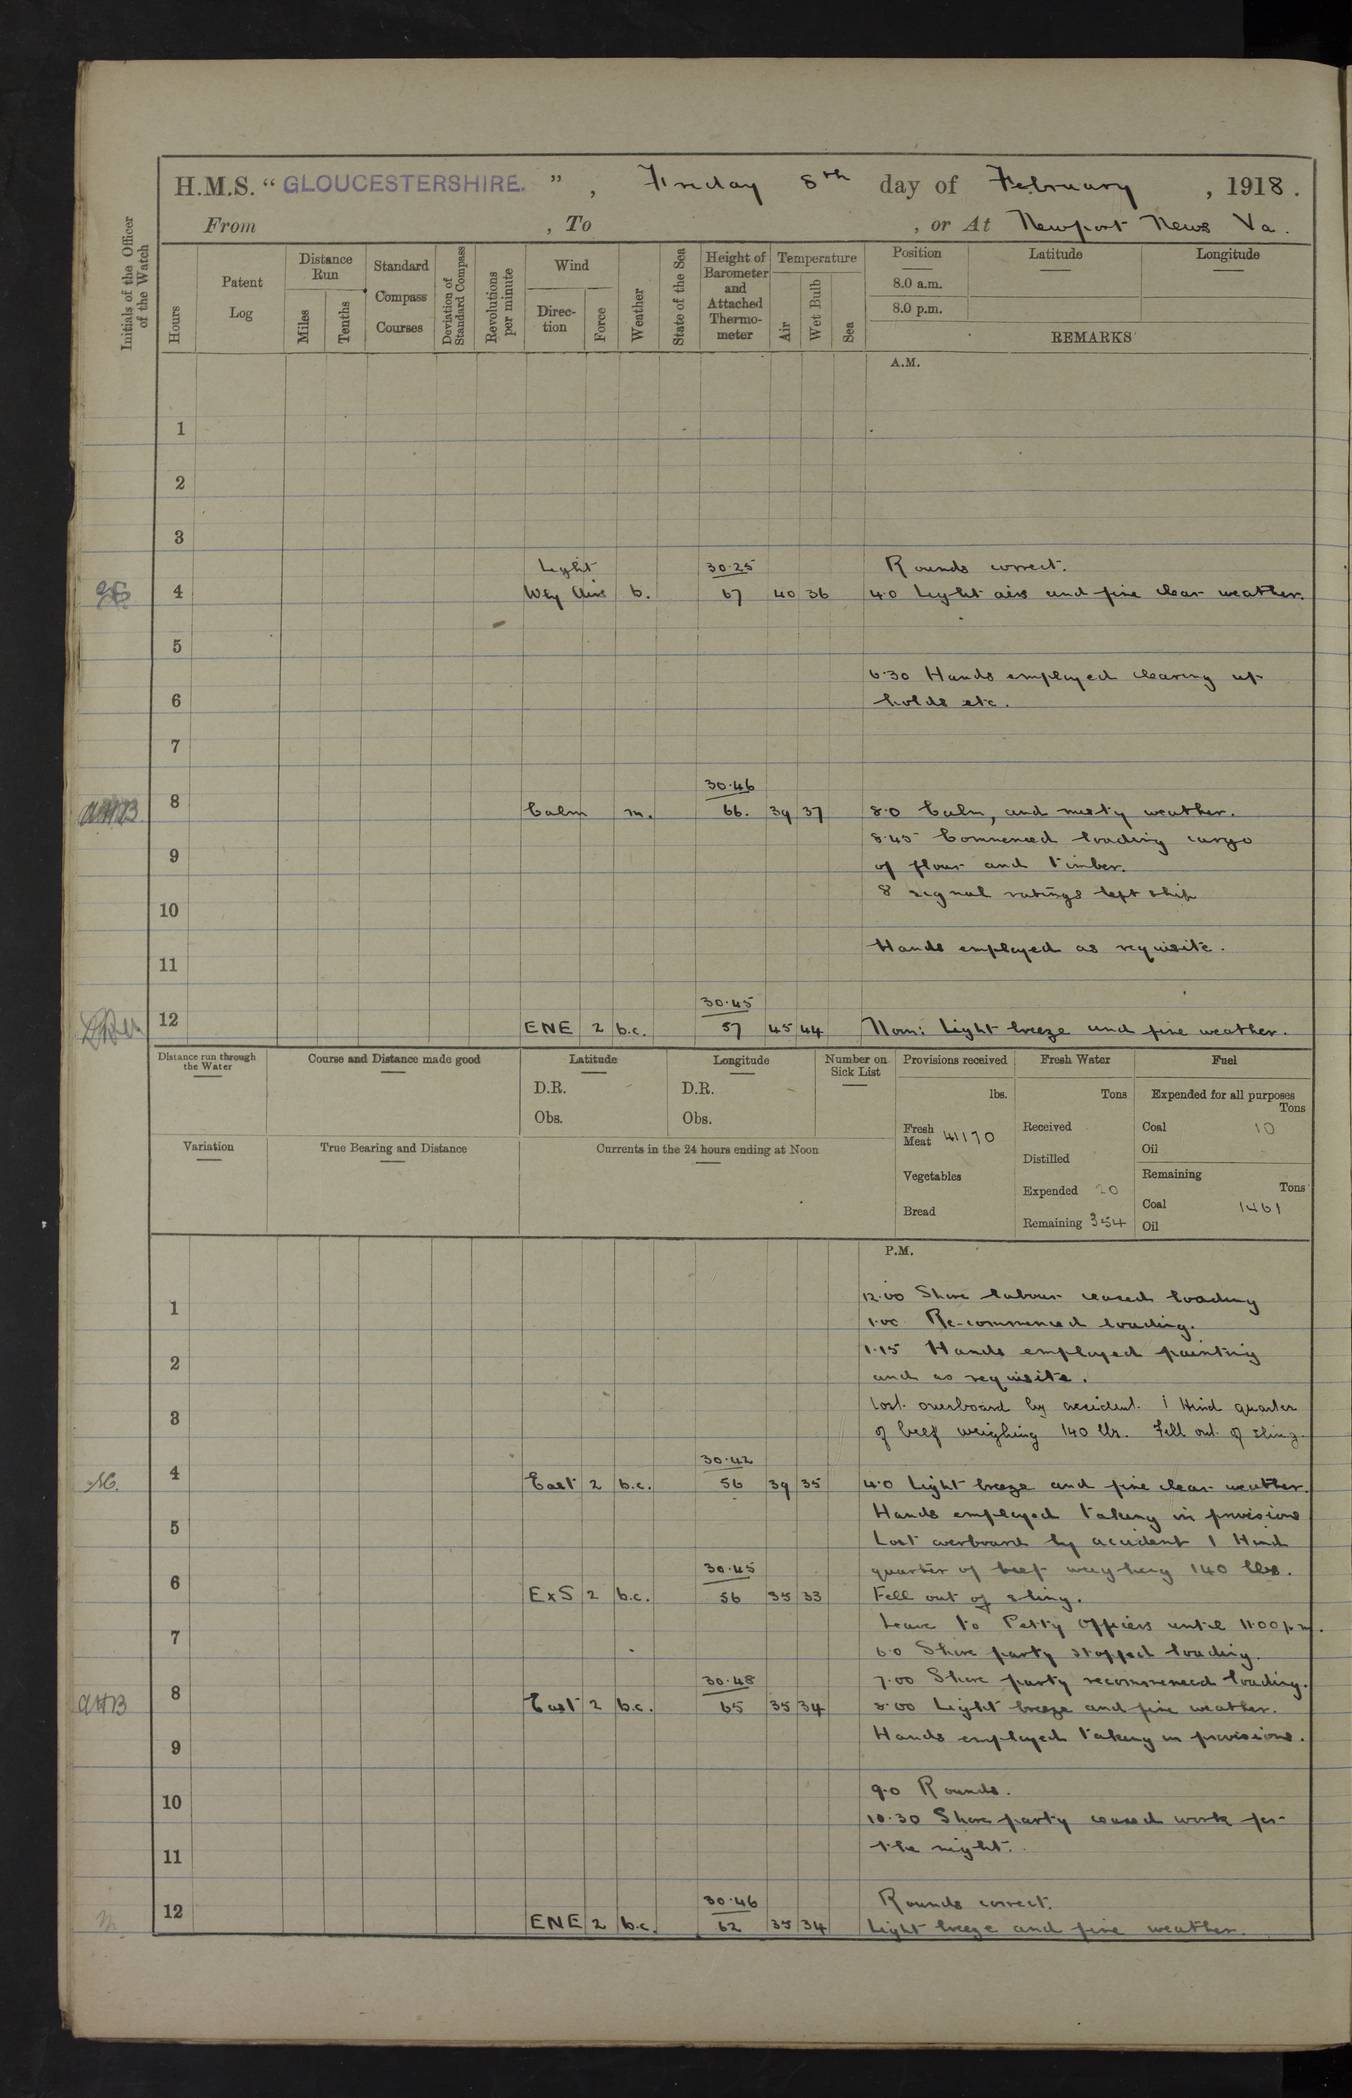 H.M.S. “ GLOUCESTERSHIRE. ” , Friday 8th day of February , 1918 .
From , To , or At Newport News Va.
Initials of the Officer of the Watch
Hours
Patent Log
Distance Run
Miles
Tenths
Standard Compass Courses
Deviation of Standard Compass
Revolutions per minute
Wind
Direction
Force
Weather
State of the Sea
Height of Barometer and Attached Thermometer
Temperature
Air
Wet Bulb
Sea
Position
8.0 a.m.
8.0 p.m.
Latitude
Longitude
REMARKS
A.M.
1
2
3
Light 30.25 Rounds correct.
4 Wly Airs b. 67 40 36 4.0 Light airs and fine clear weather.
5
6.30 Hands employed clearing up
6 holds etc.
7
30.46
AHB 8 Calm m. 66. 39 37 8.0 Calm, and misty weather.
8.45 Commenced loading cargo
9 of flour and timber.
8 signal ratings left ship
10
Hands employed as requisite.
11
30.45
12 ENE 2 b.c. 57 45 44 Noon: Light breeze and fine weather.
Distance run through the Water
Course and Distance made good
Latitude
D.R.
Obs.
Longitude
D.R.
Obs.
Number on Sick List
Provisions received
lbs.
Fresh Meat 41170
Vegetables
Bread
Fresh Water
Tons
Received
Distilled
Expended 20
Remaining 354
Fuel
Expended for all purposes
Tons
Coal 10
Oil
Remaining
Tons
Coal 1461
Oil
Variation
True Bearing and Distance
Currents in the 24 hours ending at Noon
P.M.
12.00 Shore labour ceased loading
1 1.00 Re-commenced loading.
2 1.15 Hands employed painting
and as requisite.
Lost overboard by accident 1 Hind quarter
3 of beef weighing 140 lbs. Fell out of sling.
30.42
4 East 2 b.c. 56 39 35 4.0 Light breeze and fine clear weather.
Hands employed taking in provisions
5 Lost overboard by accident 1 Hind
30.45 quarter of beef weighing 140 lbs.
6 ExS 2 b.c. 56 35 33 Fell out of sling.
Leave to Petty Officers until 11.00 p.m.
7 6.0 Shore party stopped loading.
30.48 7.00 Shore party recommenced loading.
AHB 8 East 2 b.c. 65 35 34 8.00 Light breeze and fine weather.
9 Hands employed taking in provisions.
9.0 Rounds.
10 10.30 Shore party ceased work for
11 the night.
30.46 Rounds correct.
12 ENE 2 b.c. 62 35 34 Light breeze and fine weather.